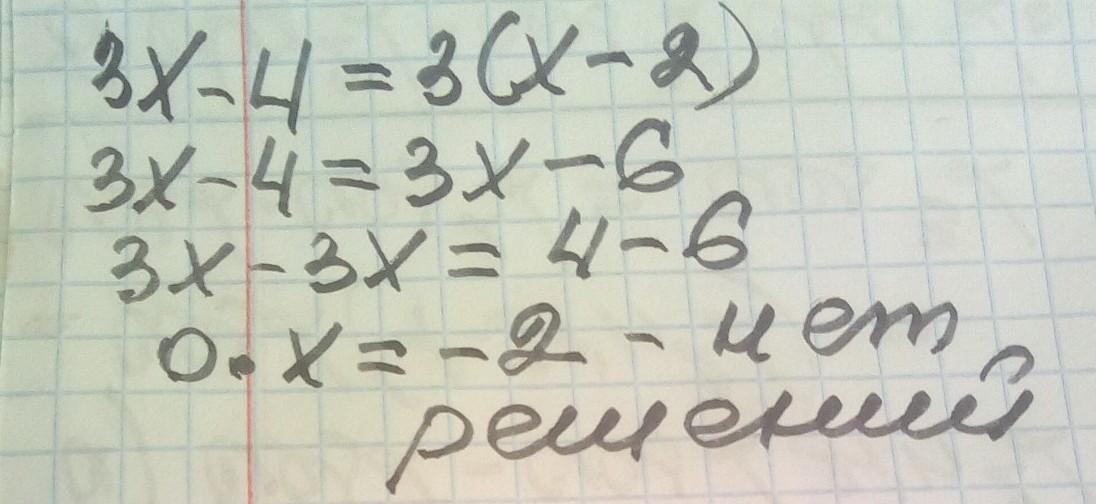 3x - 4 = 3(x - 2)
3x - 4 = 3x - 6
3x - 3x = 4 - 6
0 · x = -2 - нет
решений